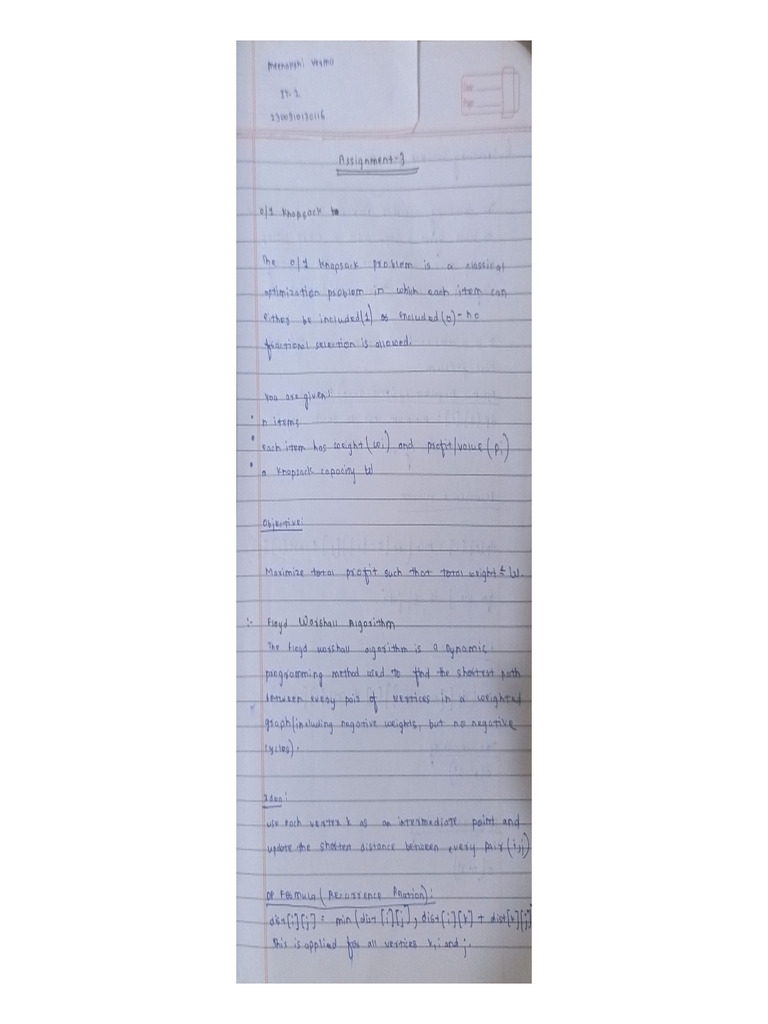 Meenakshi Verma
IT-2
2300910130116
Assignment-3
0/1 Knapsack
The 0/1 Knapsack problem is a classical
optimization problem in which each item can
either be included(1) or excluded(0)-no
fractional selection is allowed.
You are given:
• n items
• Each item has weight(wi) and profit/value(pi)
• a knapsack capacity W
Objective:
Maximize total profit such that total weight ≤ W.
:- Floyd Warshall Algorithm
The Floyd warshall algorithm is a Dynamic
programming method used to find the shortest path
between every pair of vertices in a weighted
graph(including negative weights, but no negative
cycles).
Idea:
use each vertex k as an intermediate point and
update the shortest distance between every pair(i,j)
DP Formula (Recurrence Relation):
dist[i][j] = min(dist[i][j], dist[i][k] + dist[k][j]
This is applied for all vertices k,i and j.